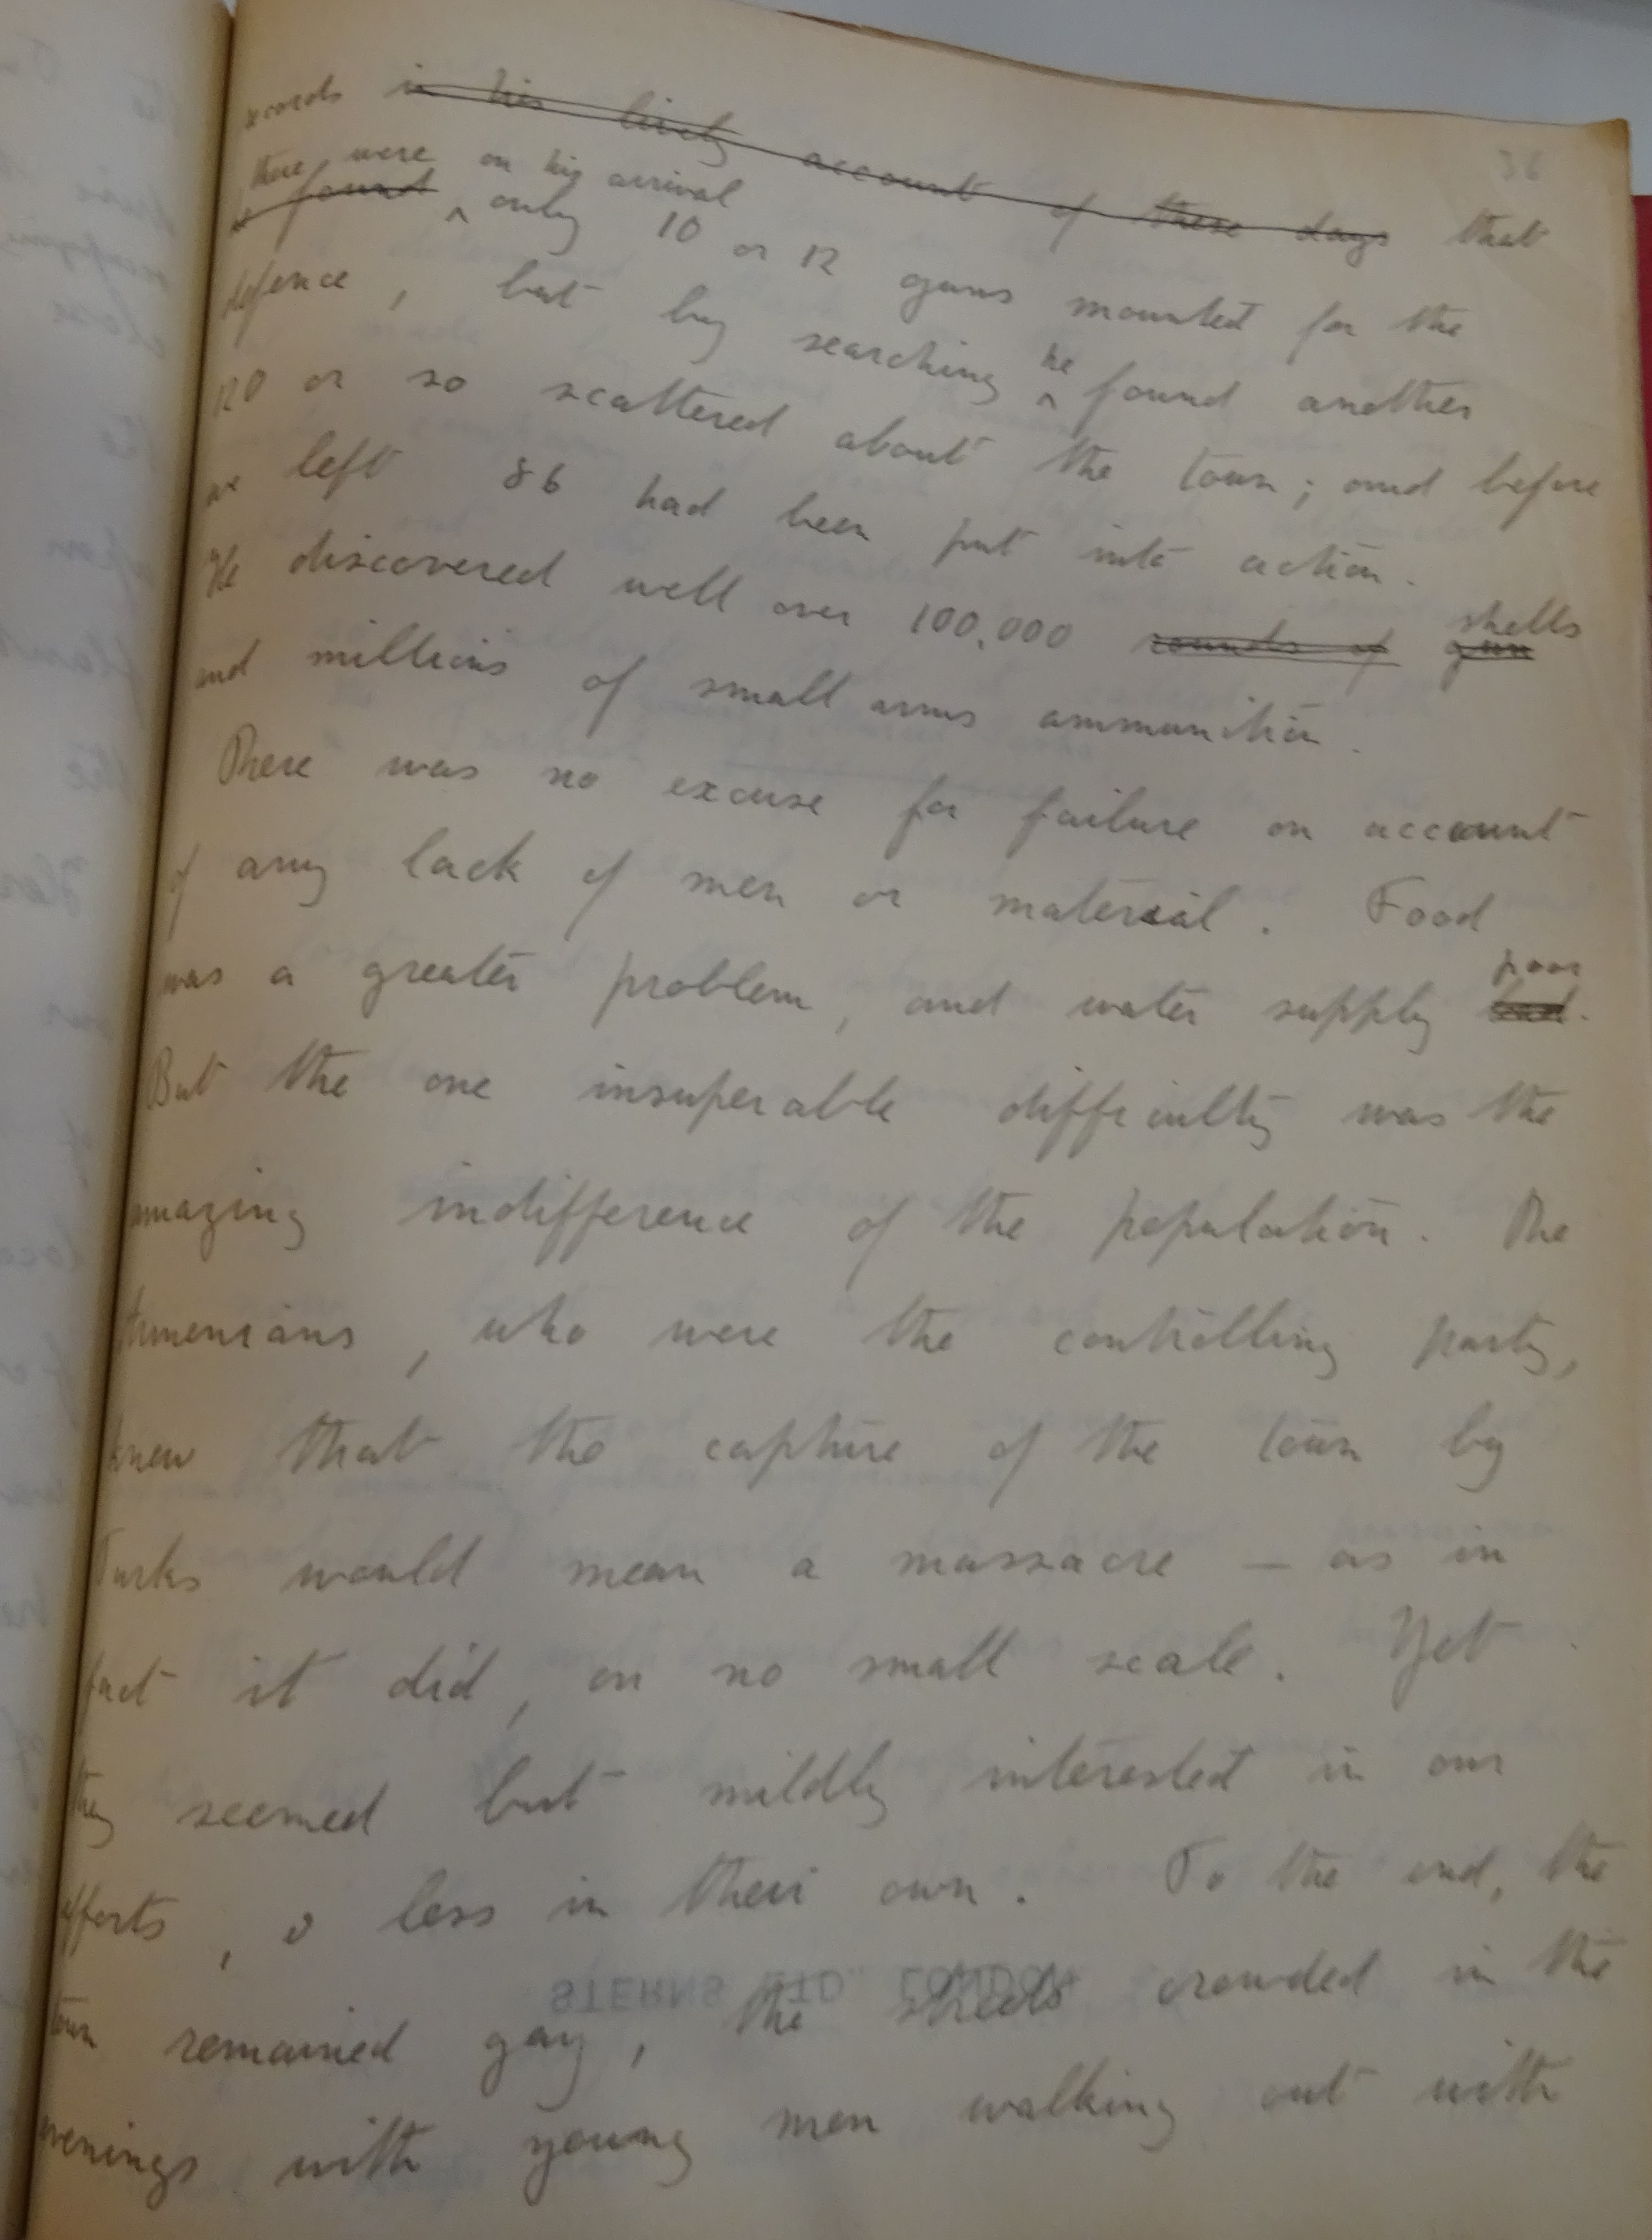 36
records in his lively account of these days that
there were on his arrival
he found only 10 or 12 guns mounted for the
defence, but by searching he found another
120 or so scattered about the town; and before
we left 86 had been put into action.
He discovered well over 100,000 rounds of gun shells
and millions of small arms ammunition.
There was no excuse for failure on account
of any lack of men or material. Food
was a greater problem, and water supply bad poor.
But the one insuperable difficulty was the
amazing indifference of the population. The
Armenians, who were the controlling party,
knew that the capture of the town by
Turks would mean a massacre – as in
fact it did, on no small scale. Yet
they seemed but mildly interested in our
efforts, & less in their own. To the end, the
town remained gay, the streets crowded in the
evenings with young men walking out with
STERNS LTD. LONDON